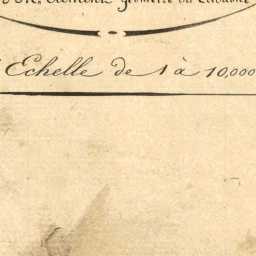 géomètre du Cadastre
Echelle de 1 à 10,000